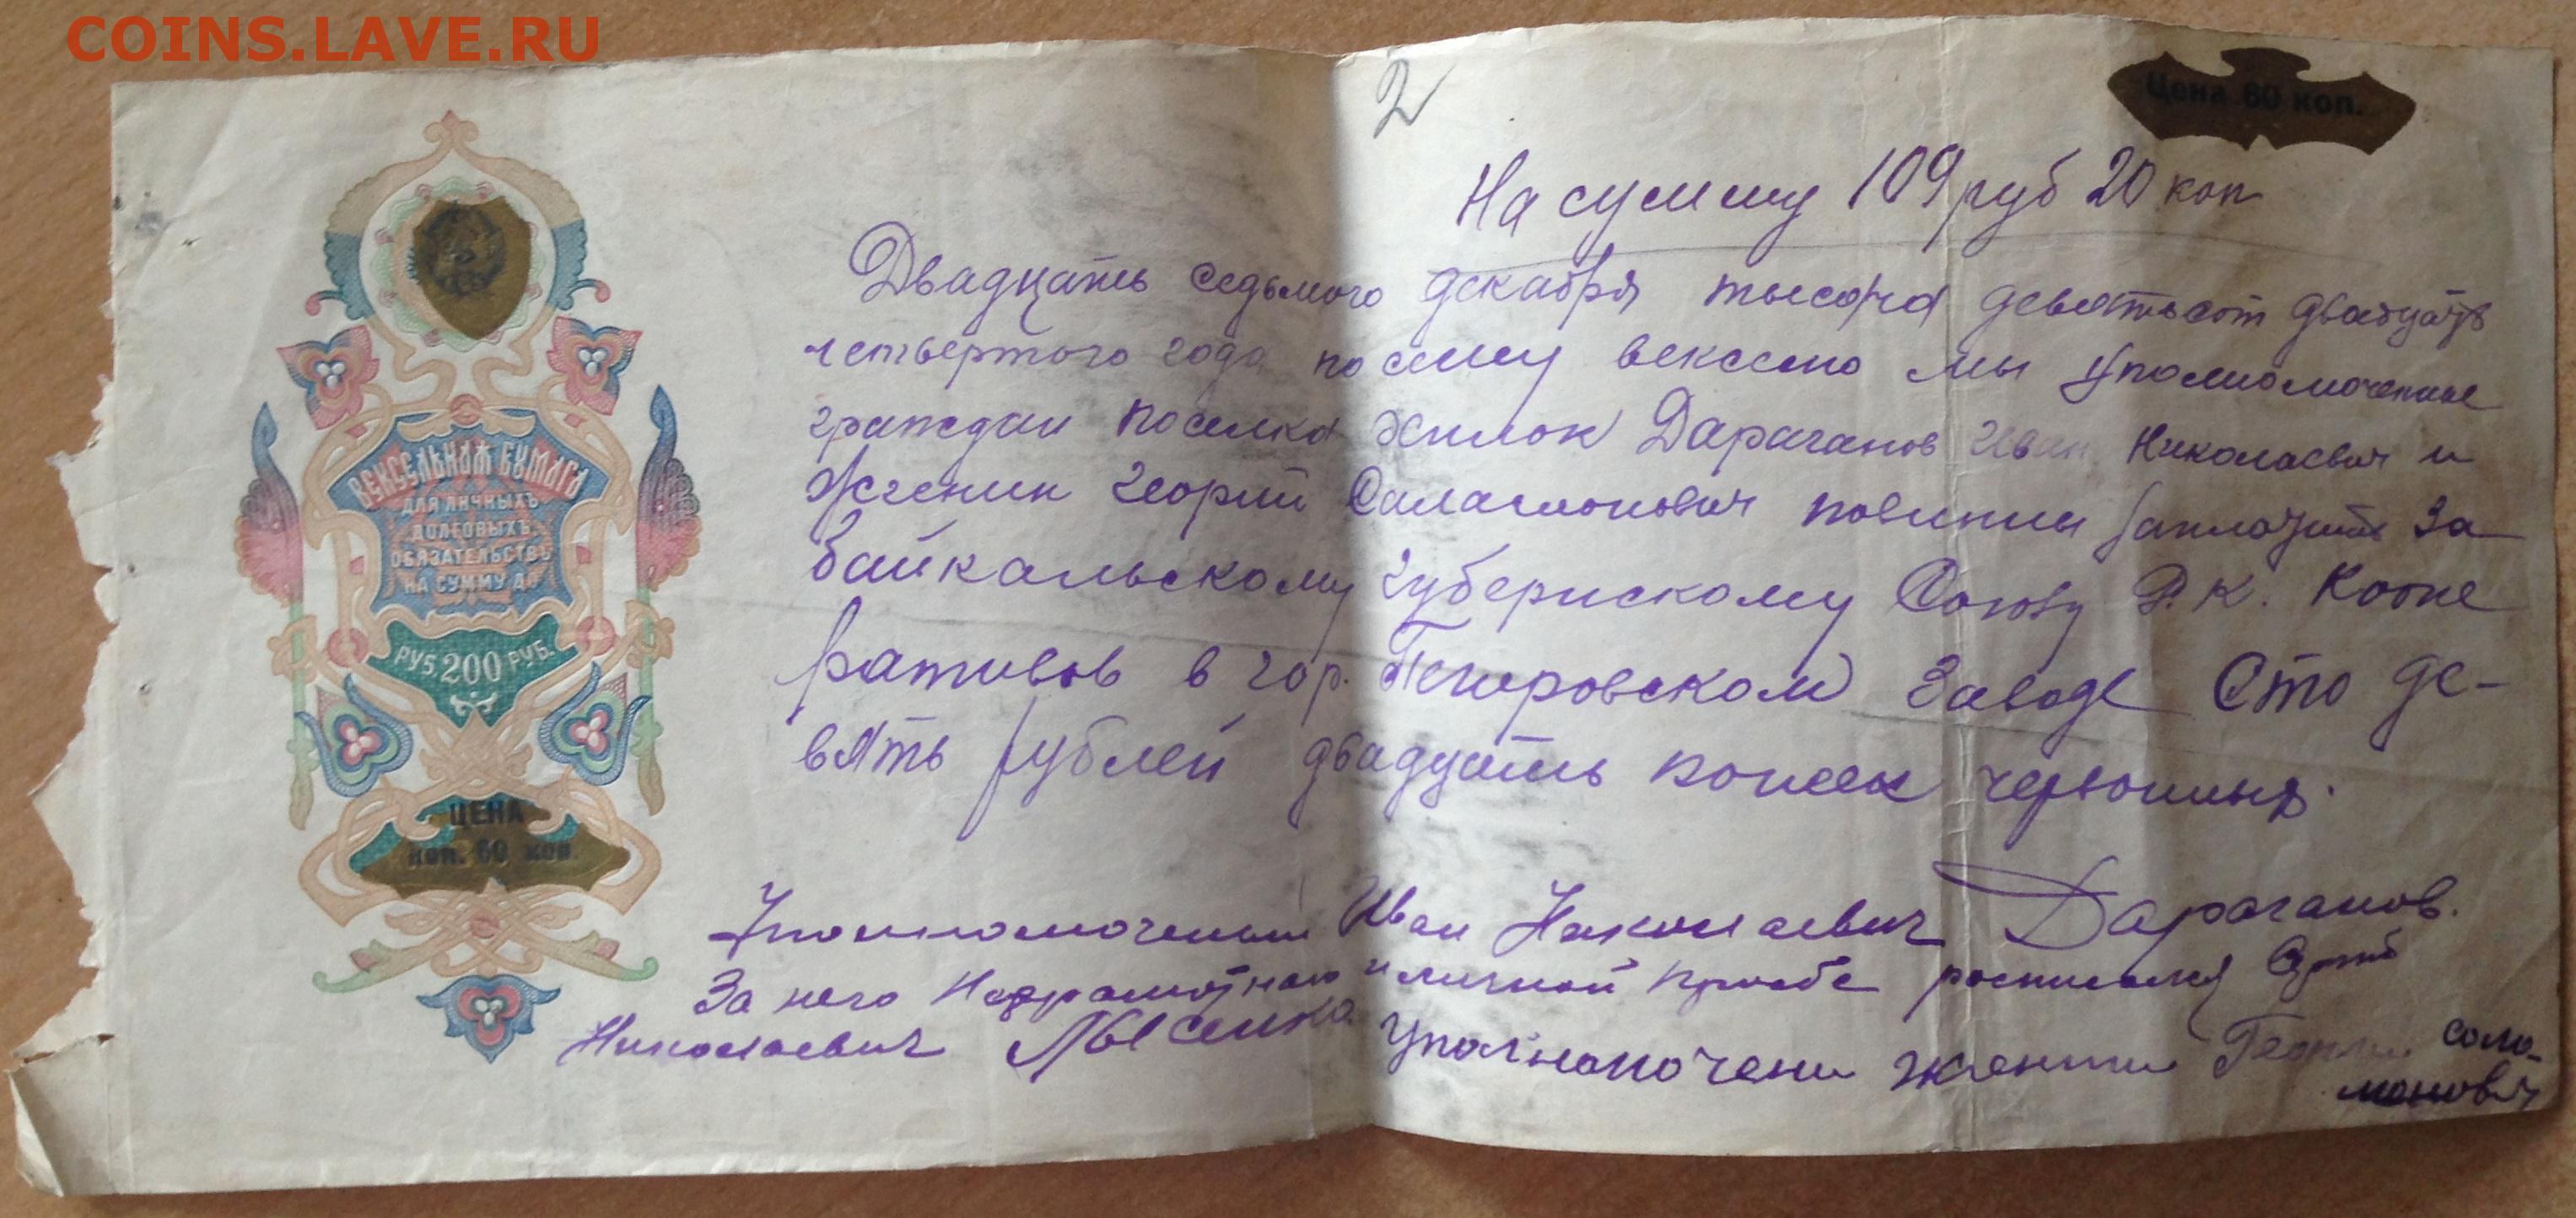 COINS.LAVE.RU
2
Цена 60 коп.
На сумму 109 руб 20 коп
Двадцать седьмого декабря тысяча девятьсот двадцать
четвертого года по сему векселю мы уполномоченные
граждан поселка Хилок Дараганов Иван Николаевич и
Женин Георгий повинны заплатить За
байкальскому губернскому Союзу Р.К. Коопе
ративов в гор. Петровском Заводе Сто де-
вять рублей двадцать копеек
Уполномоченный Иван Николаевич Дараганов.
За него и личной росписался
Николаевич Лысенко. Уполномочени Женин Георгий Соло-
монович
ВЕКСЕЛЬНАЯ БУМАГА
ДЛЯ ЛИЧНЫХЪ
ДОЛГОВЫХЪ
ОБЯЗАТЕЛЬСТВЪ
НА СУММУ ДО
РУБ. 200 РУБ.
ЦЕНА
коп. 60 коп.